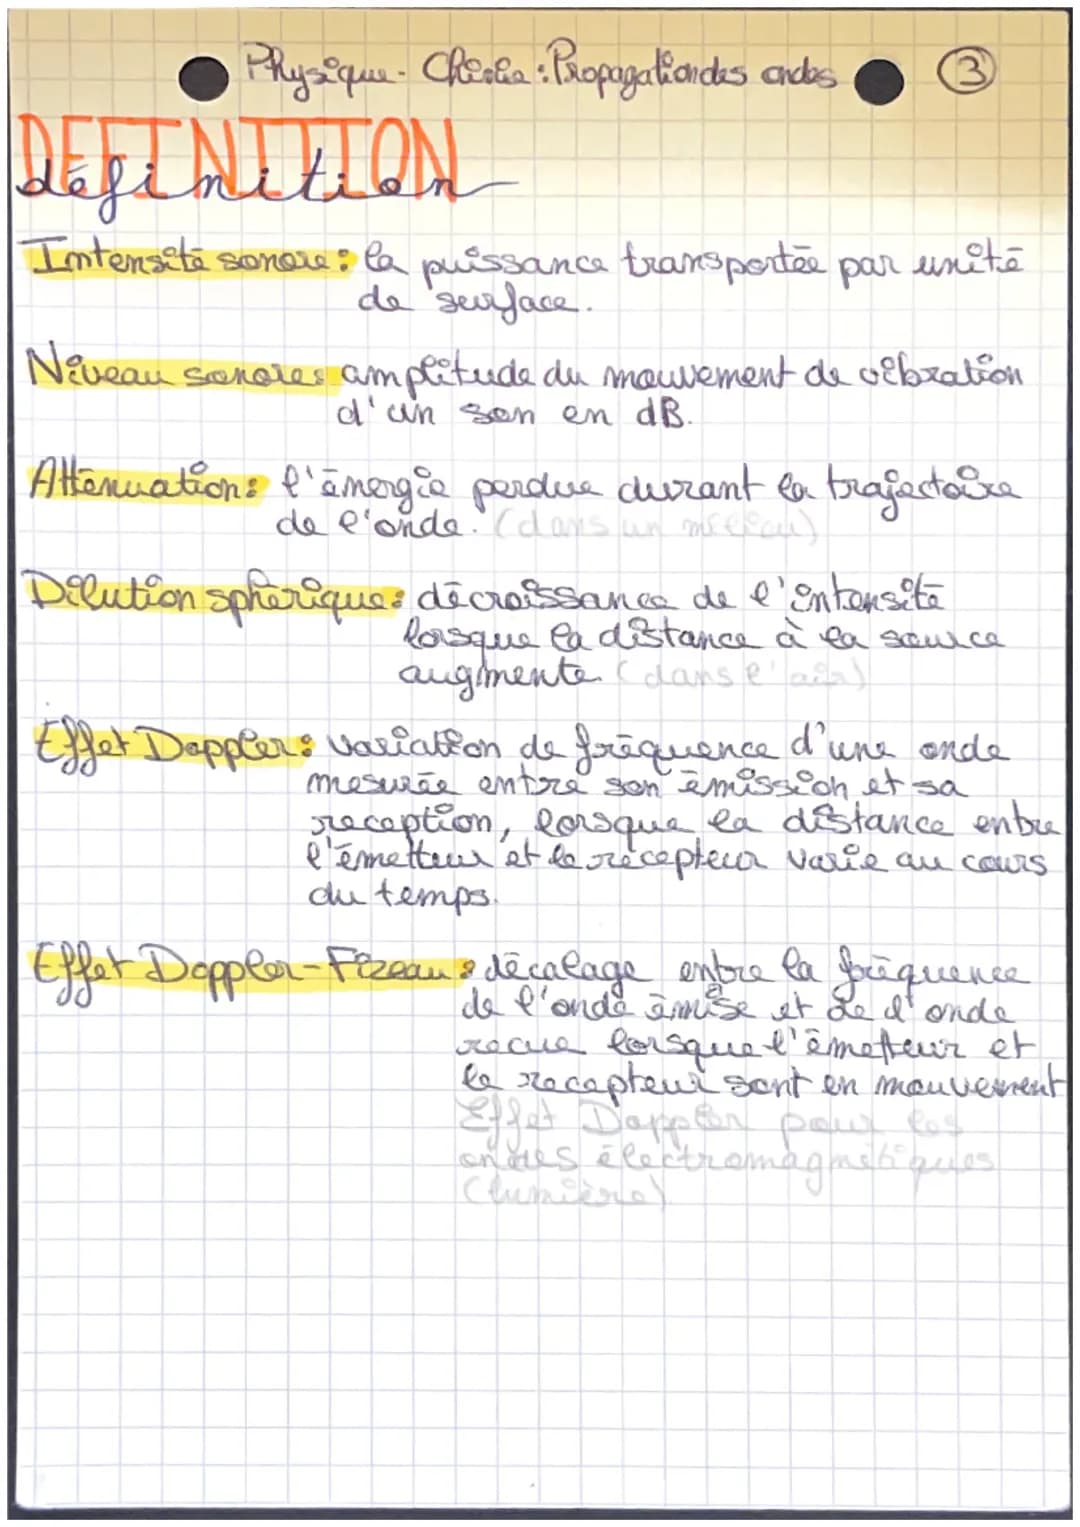 Physique - Chimie : Propagation des ondes ③
DEFINITION
définition
Intensité sonore : la puissance transportée par unité
de surface.
Niveau sonore : amplitude du mouvement de vibration
d'un son en dB.
Atténuation : l'énergie perdue durant la trajectoire
de l'onde. (dans un milieu)
Dilution sphérique : décroissance de l'intensité
lorsque la distance à la source
augmente. (dans l'air)
Effet Doppler : variation de fréquence d'une onde
mesurée entre son émission et sa
réception, lorsque la distance entre
l'émetteur et le récepteur varie au cours
du temps.
Effet Doppler-Fizeau : décalage entre la fréquence
de l'onde émise et de l'onde
recue lorsque l'émetteur et
le recepteur sont en mouvement
Effet Doppler pour les
ondes électromagnétiques
(lumière)